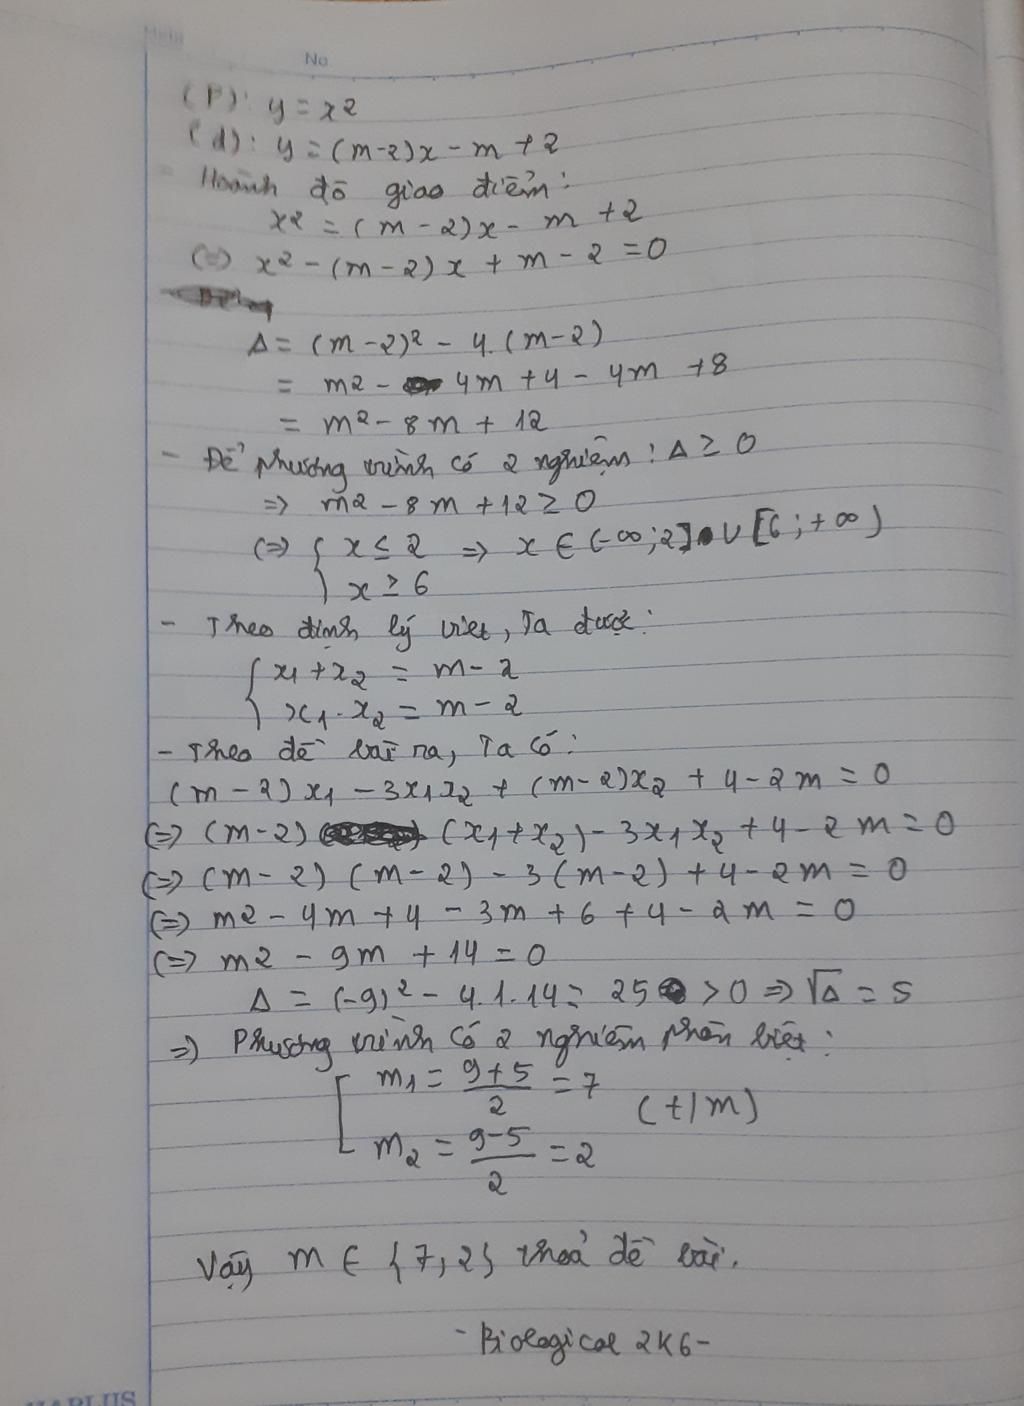 No
(P): y = x²
(d): y = (m-2)x - m + 2
Hoành độ giao điểm:
x² = (m - 2)x - m + 2
(=) x² - (m - 2)x + m - 2 = 0
Δ = (m - 2)² - 4.(m - 2)
= m² - 4m + 4 - 4m + 8
= m² - 8m + 12
- Để phương trình có 2 nghiệm: Δ ≥ 0
=> m² - 8m + 12 ≥ 0
(=> { x ≤ 2 => x ∈ (-∞; 2] ∪ [6; +∞)
x ≥ 6
- Theo định lý viet, Ta được:
{ x₁ + x₂ = m - 2
x₁ . x₂ = m - 2
- Theo đề bài ra, Ta có:
(m - 2)x₁ - 3x₁x₂ + (m - 2)x₂ + 4 - 2m = 0
(=> (m - 2) (x₁ + x₂) - 3x₁x₂ + 4 - 2m = 0
(=> (m - 2)(m - 2) - 3(m - 2) + 4 - 2m = 0
(=> m² - 4m + 4 - 3m + 6 + 4 - 2m = 0
(=> m² - 9m + 14 = 0
Δ = (-9)² - 4.1.14 = 25 > 0 => √Δ = 5
=> Phương trình có 2 nghiệm phân biệt:
[ m₁ = (9+5)/2 = 7 (t/m)
m₂ = (9-5)/2 = 2
Vậy m ∈ {7, 2} thoả đề bài.
- Biological 2K6 -